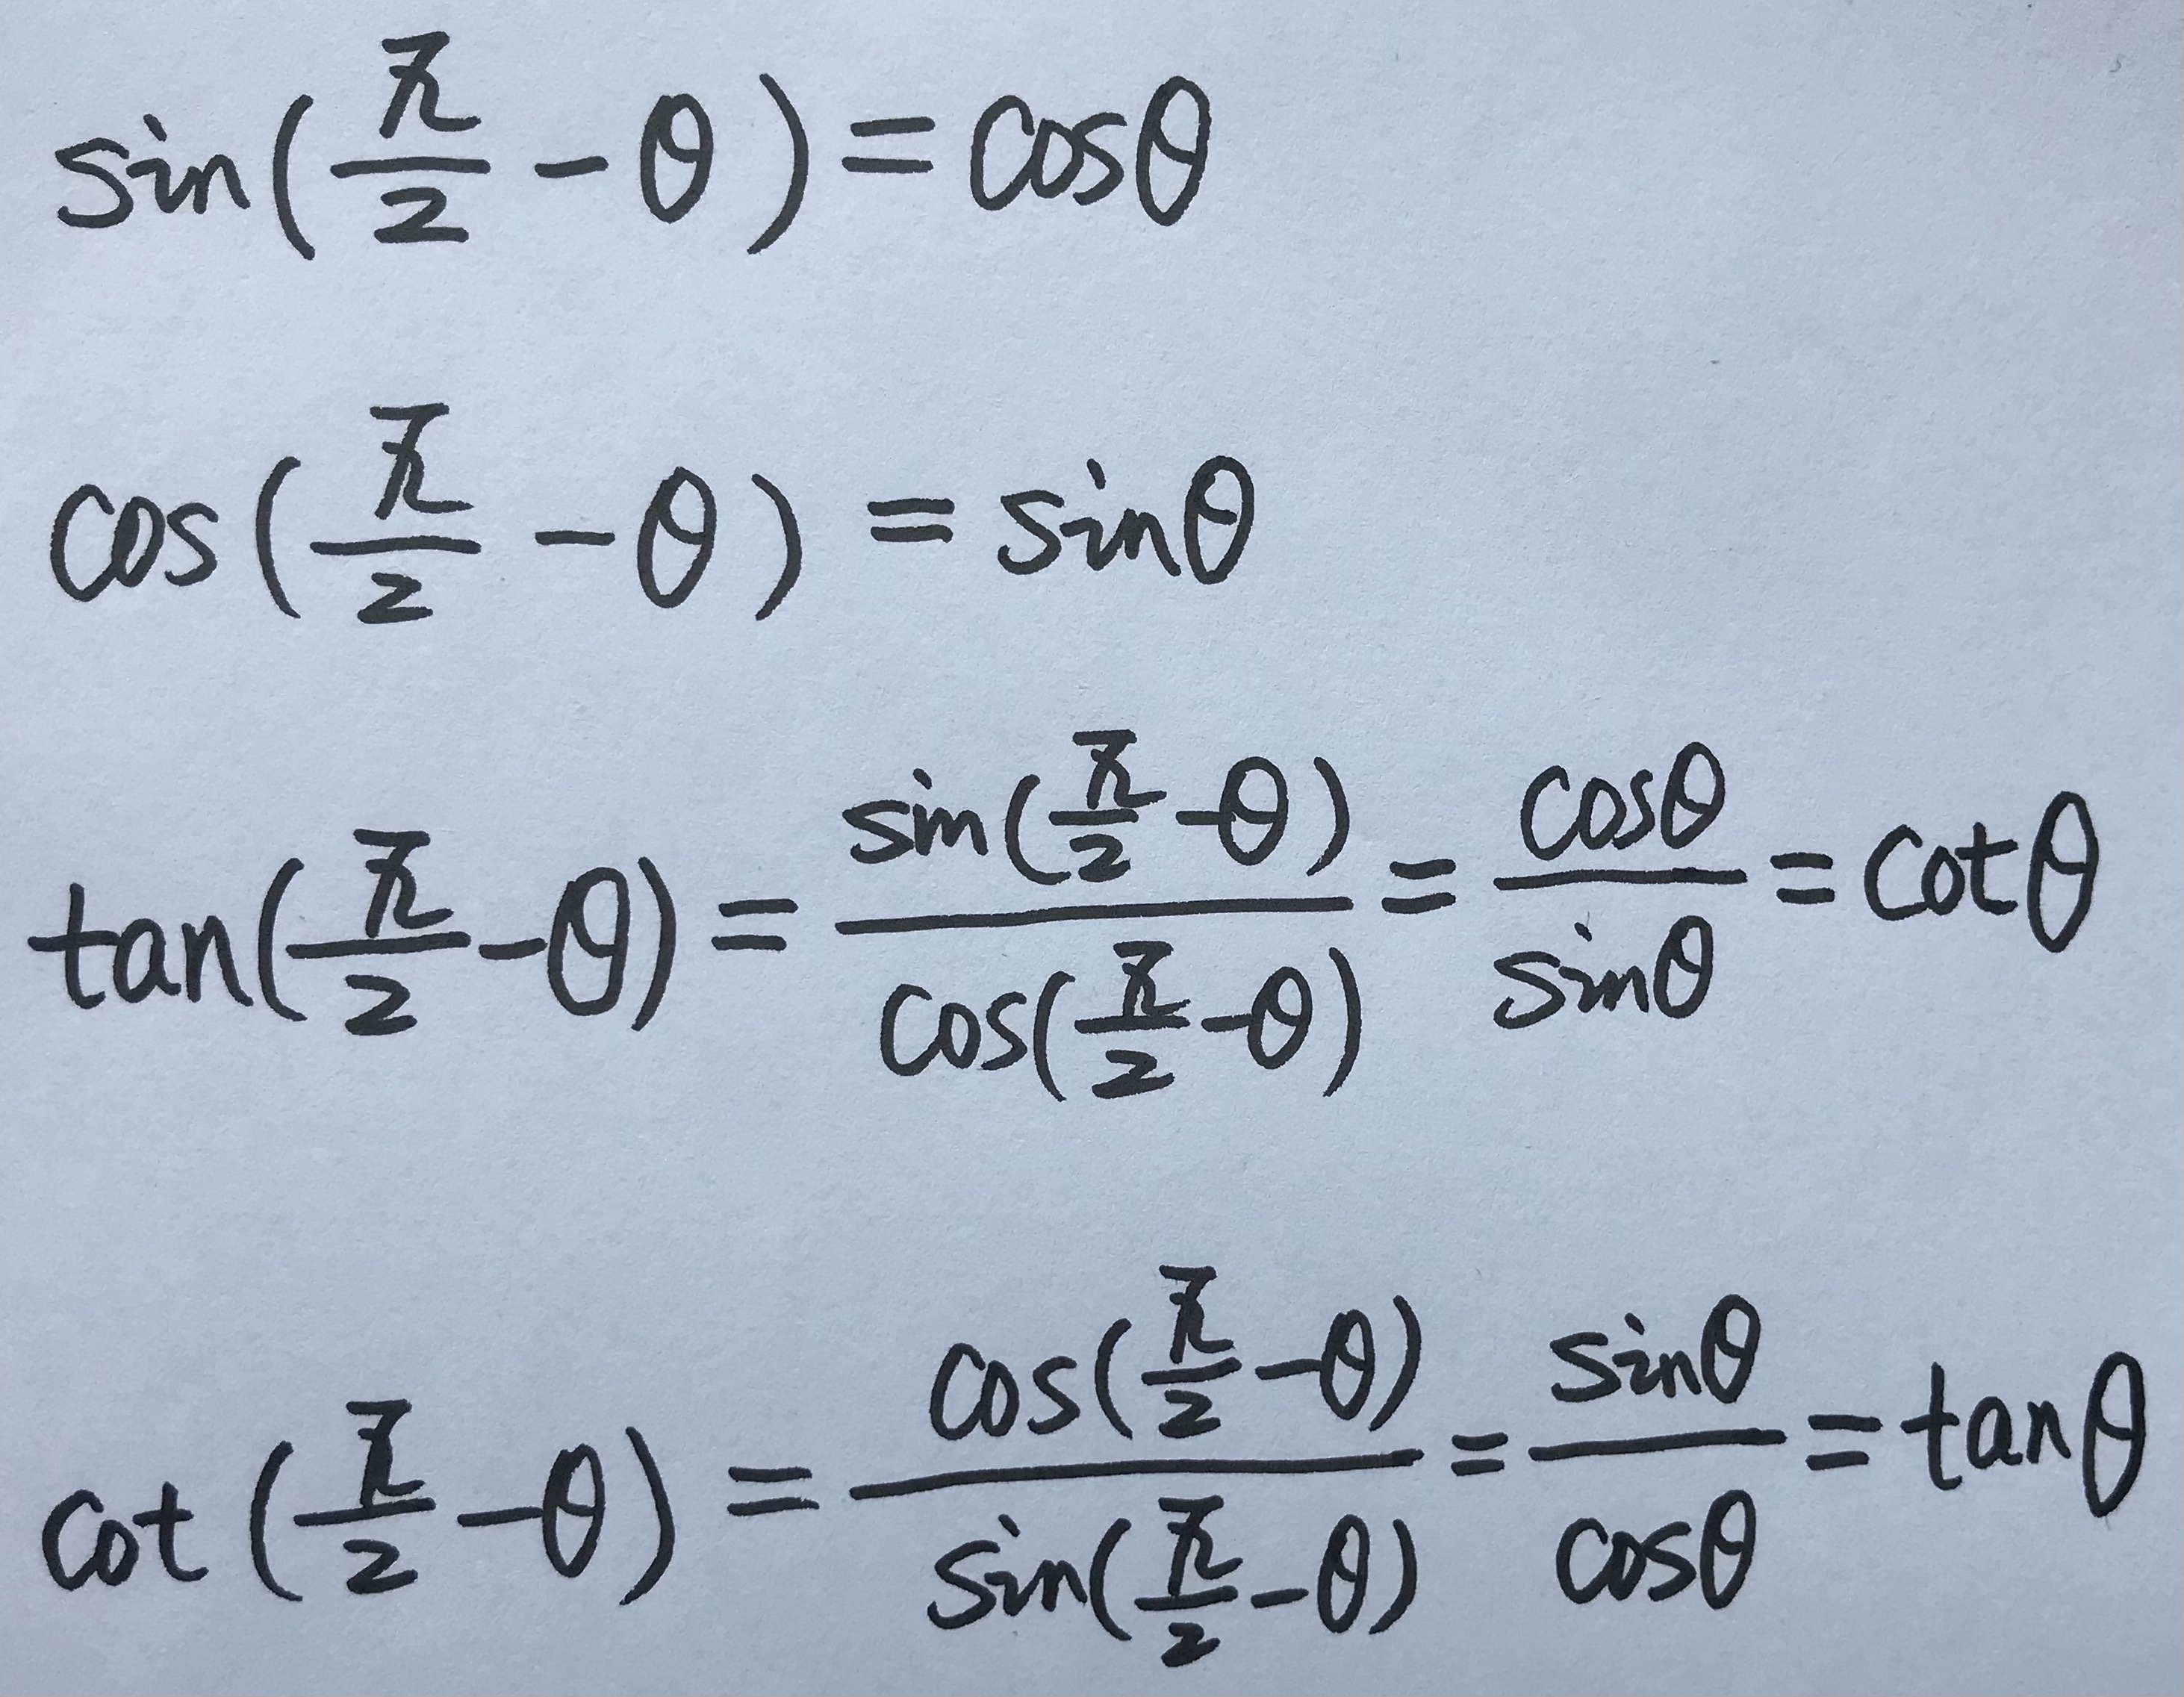 sin(π/2 - θ) = cosθ
cos(π/2 - θ) = sinθ
tan(π/2 - θ) = sin(π/2 - θ)/cos(π/2 - θ) = cosθ/sinθ = cotθ
cot(π/2 - θ) = cos(π/2 - θ)/sin(π/2 - θ) = sinθ/cosθ = tanθ